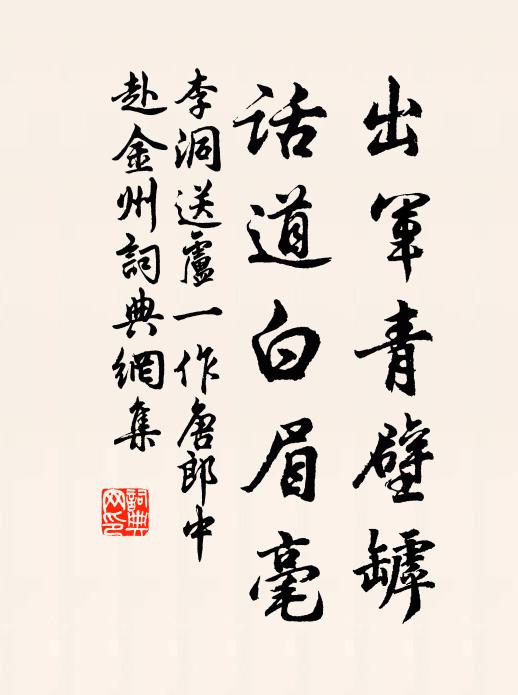 出軍青壁罅
話道白眉毫
李洞送盧一作唐郎中
赴金州詞典網集
詞典
网印